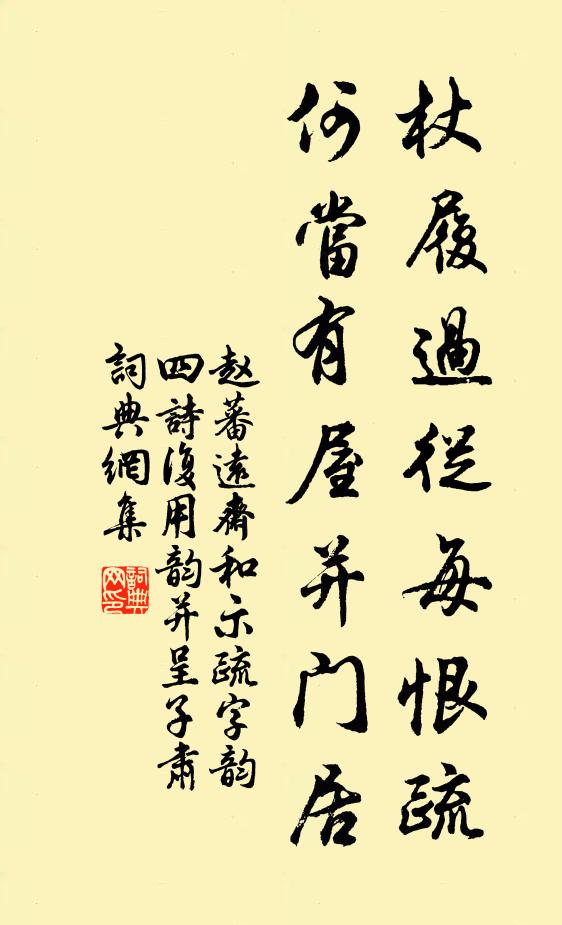 杖履過從每恨疏
何當有屋并门居
赵蕃遠齋和示疏字韵
四詩復用韵并呈子肅
詞典網集
詞典網印